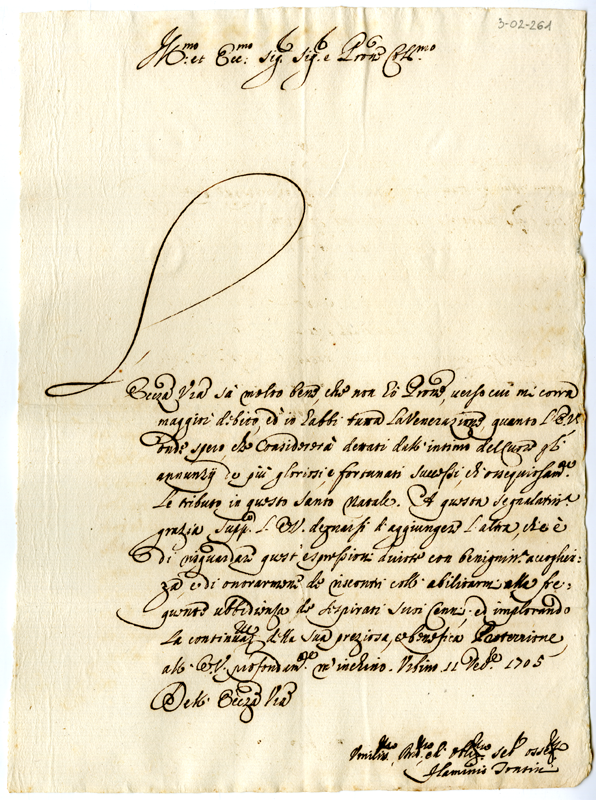 3-02-261
Ill.mo et Ecc.mo Sig.r Sig.r e Pron Coll.mo
L
Eccza Vra sà molto bene, che non hò Prone, verso cui mi corra
maggior debito, ed in habbi tutta la Venerazione, quanto l'E.V.
onde spero che Considererà derivati dall'intimo del Cuore gl'
annunzij de più gloriosi, e fortunati successi, ch'ossequiosam.te
Le tributo in questo Santo Natale. A questa segnalatiss.a
grazia supp.co l'E.V. degnarsi d'aggiunger l'altra, ch'è
di risguardar quest'espressioni divote con benigniss.a accoglien-
za e di onorarmene de riscontri coll'abilitarmi alla fre-
quente ubbidienza de stimati Suoi Cenni; ed implorando
la continuaz.ne della Sua preziosa, e benefica Protezzione,
all'E.V. profondam.te m'inchino. Urbino 11 Xbre 1705
Dell'Eccza Vra
Umiliss.mo Dev.mo ed Obblig.mo Se.re osseq.mo
Flaminio